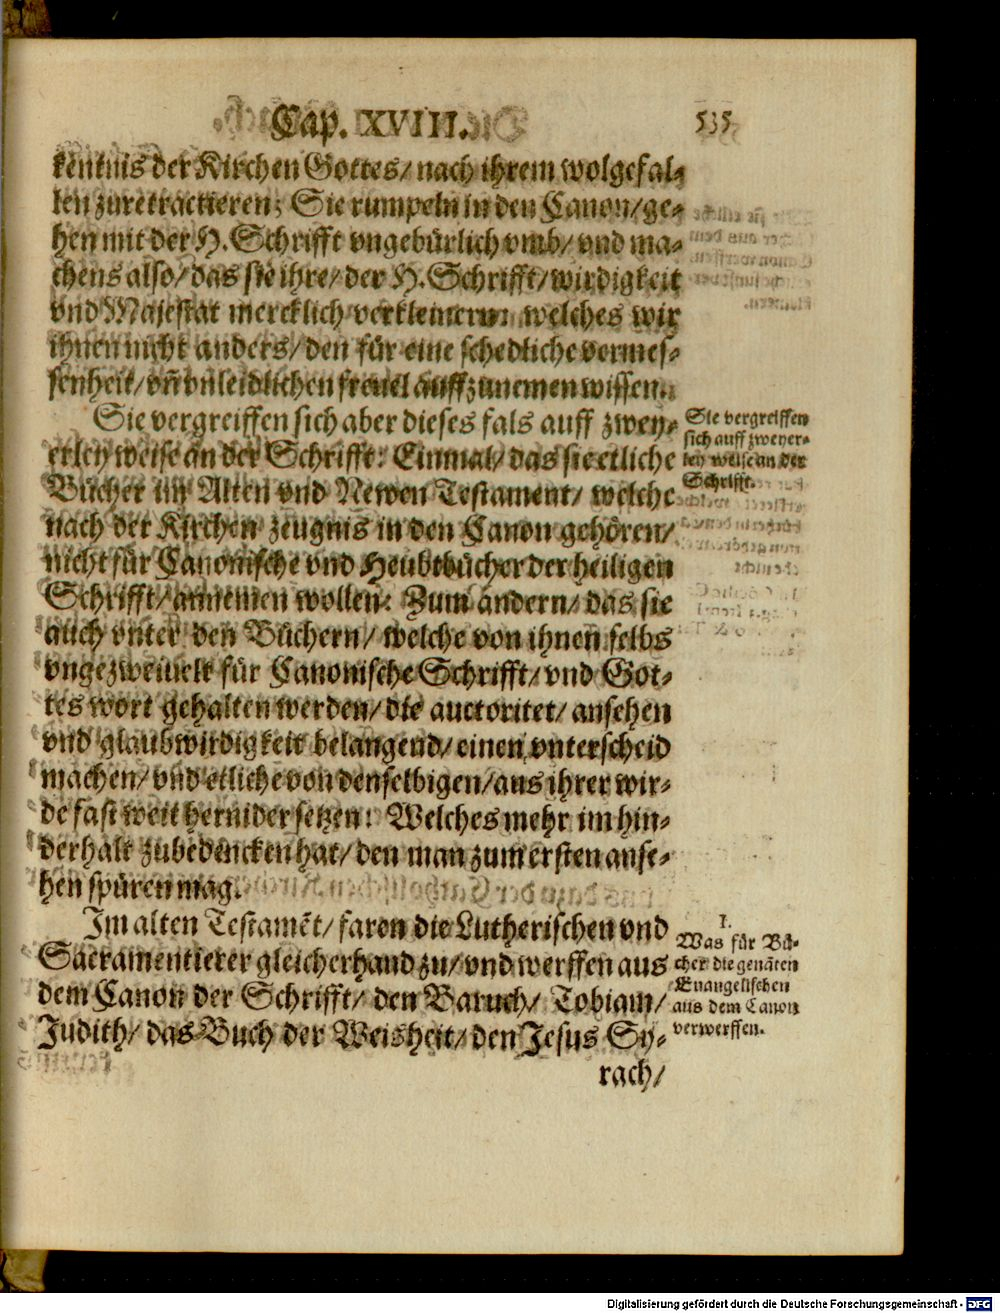 Cap. XVIII. 535
kentnis der Kirchen Gottes/ nach ihrem wolgefal-
len zuretractieren: Sie rumpeln in den Canon/ ge-
hen mit der H. Schrifft vngebürlich vmb/ vnd ma-
chens also/ das sie ihre/ der H. Schrifft/ wirdigkeit
vnd Majestat mercklich verkleinern: welches wir
ihnen nicht anders/ den für eine schedliche vermes-
senheit/ vñ vnleidlichen freuel auffzunemen wissen.
Sie vergreiffen sich aber dieses fals auff zwey-
erley weise an der Schrifft: Einmal/ das sie etliche
Bücher im Alten vnd Newen Testament/ welche
nach der Kirchen zeugnis in den Canon gehören/
nicht für Canonische vnd Heubtbücher der heiligen
Schrifft/ annemen wollen: Zum andern/ das sie
auch vnter den Büchern/ welche von ihnen selbs
vngezweiuelt für Canonische Schrifft/ vnd Got-
tes wort gehalten werden/ die auctoritet/ ansehen
vnd glaubwirdigkeit belangend/ einen vnterscheid
machen/ vnd etliche von denselbigen/ aus ihrer wir-
de fast weit hernider setzen: Welches mehr im hin-
derhalt zubedencken hat/ den man zum ersten anse-
hen spüren mag.
Im alten Testamēt/ faren die Lutherischen vnd
Sacramentierer gleicherhand zu/ vnd werffen aus
dem Canon der Schrifft/ den Baruch/ Tobiam/
Judith/ das Buch der Weisheit/ den Jesus Sy-
rach/
Sie vergreiffen
sich auff zweyer-
ley weise an der
Schrifft.
1.
Was für Bü-
cher die genāten
Euangelischen
aus dem Canon
verwerffen.
Digitalisierung gefördert durch die Deutsche Forschungsgemeinschaft - DFG